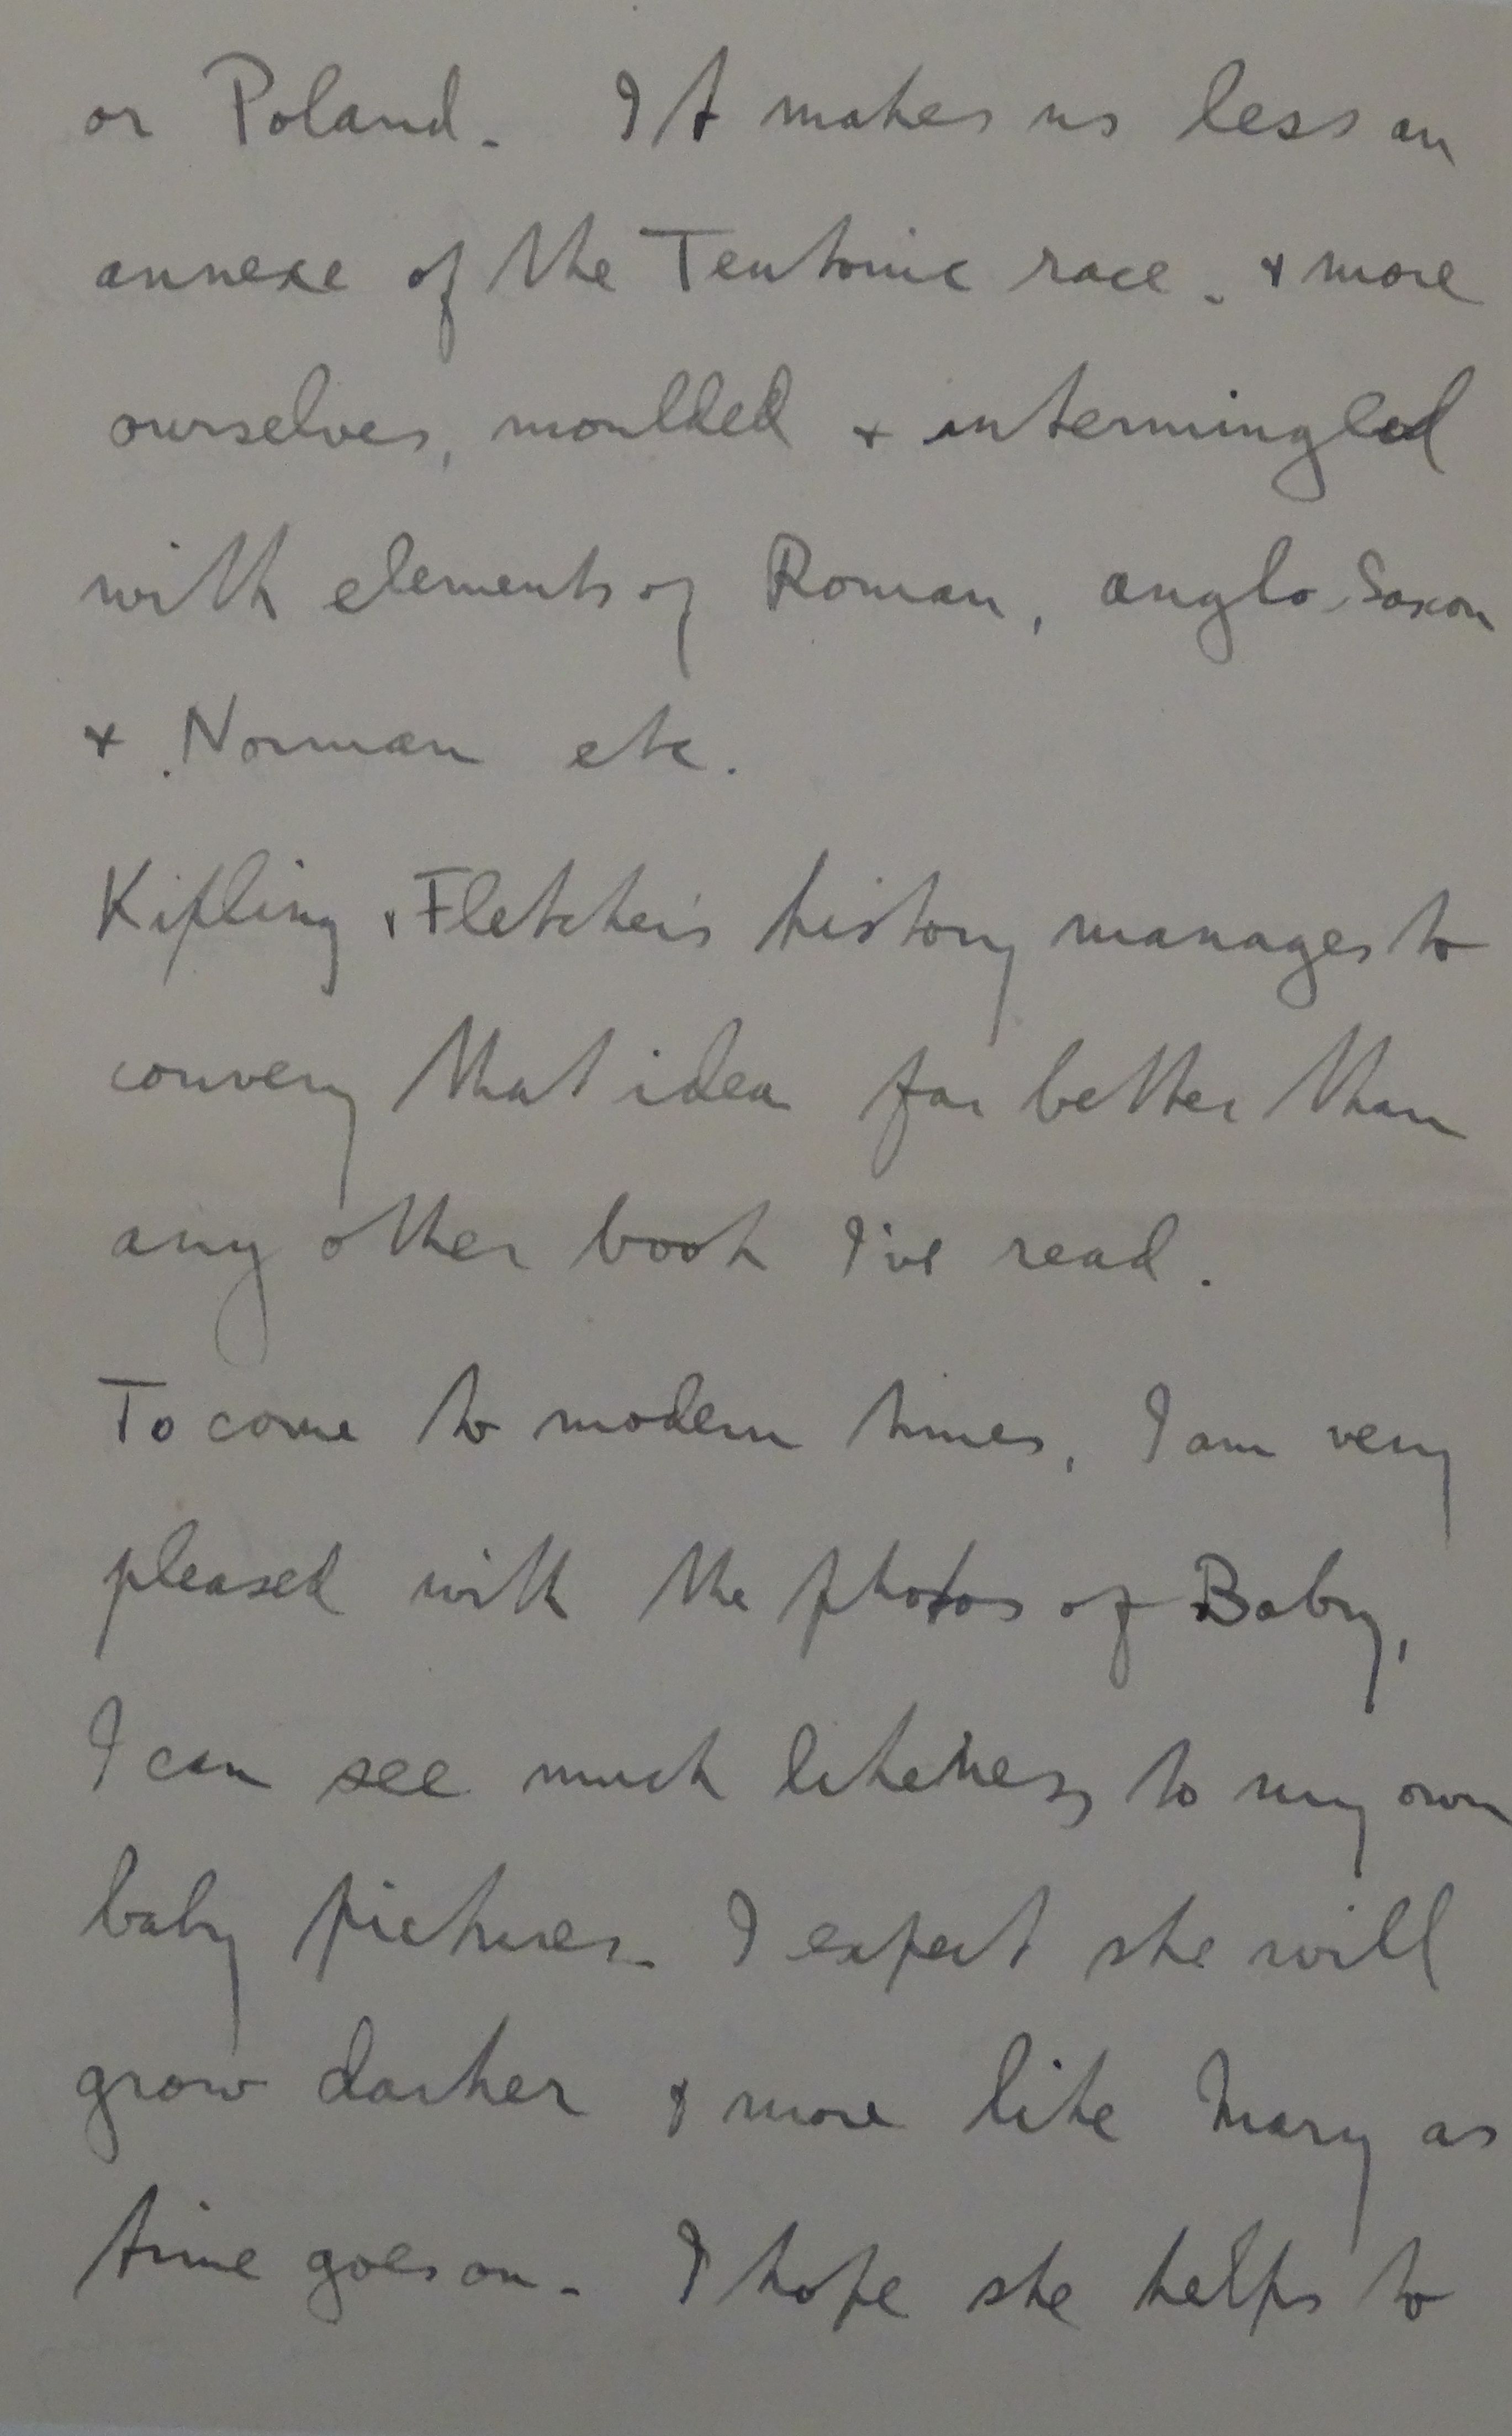 or Poland. It makes us less an
annexe of the Teutonic race. & more
ourselves, moulded & intermingled
with elements of Roman, anglo-Saxon
& Norman etc.
Kipling & Fletcher's history manages to
convey that idea far better than
any other book I've read.
To come to modern times, I am very
pleased with the photos of Baby,
I can see much likeness to my own
baby pictures. I expect she will
grow darker & more like Mary as
time goes on. I hope she helps to